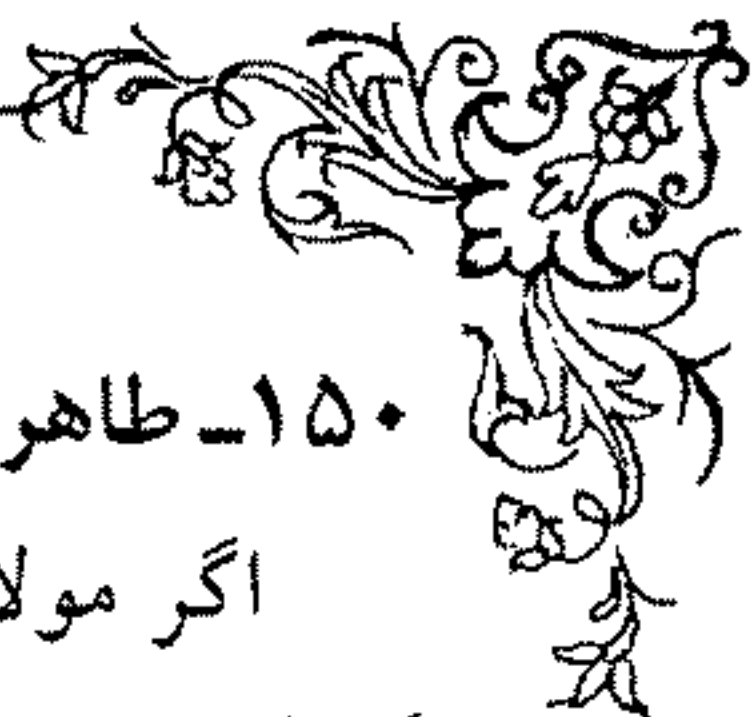 ۱۵۰ـ طاهر
اگر مولا